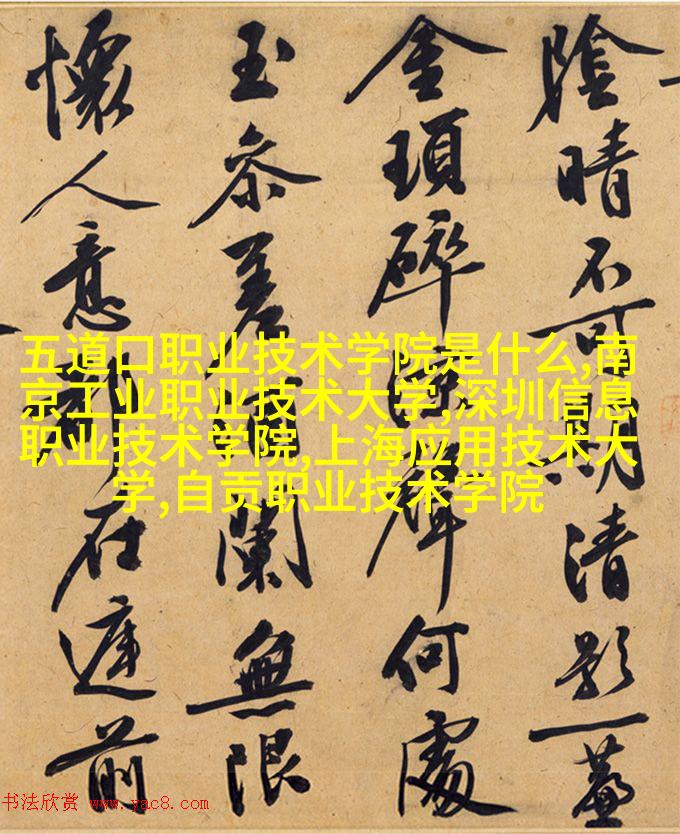 陰晴不可清影一
金瑣碎聲何處
玉參差闌無限
懷人意在前
五道口职业技术学院是什么,南
京工业职业技术大学,深圳信息
职业技术学院,上海应用技术大
学,自贡职业技术学院
书法欣赏 www.yac8.com